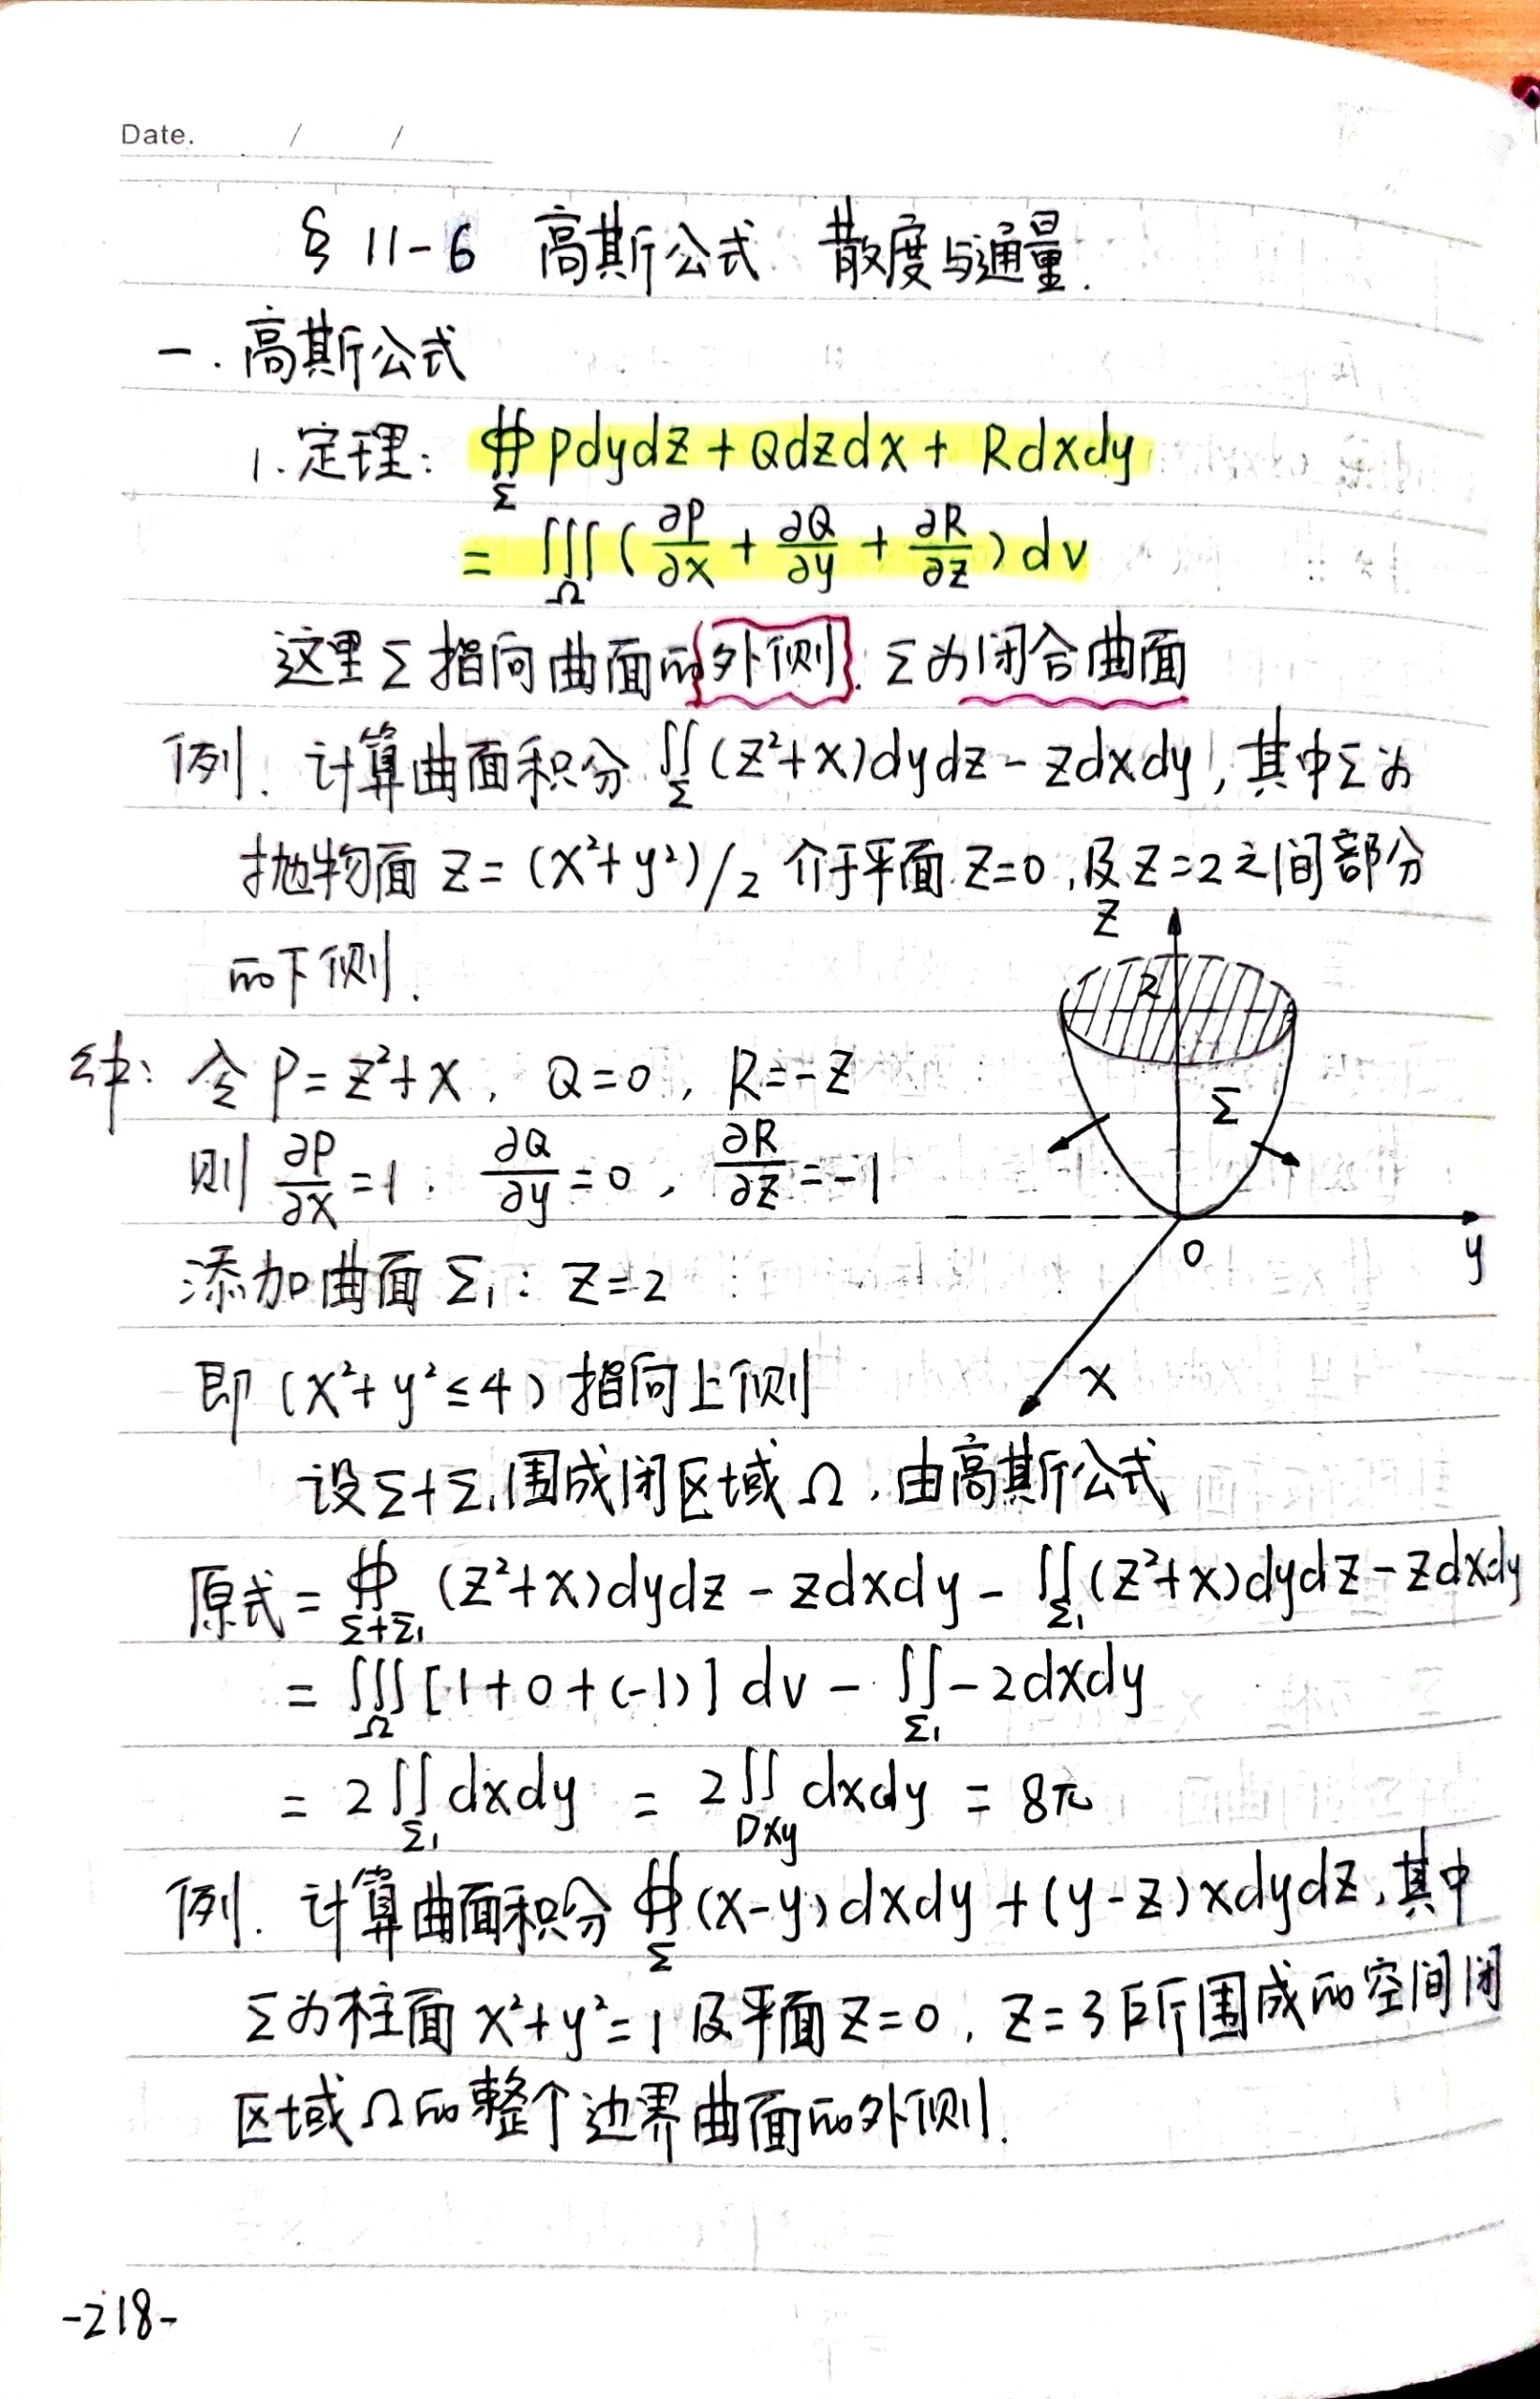 Date. / /
§ 11-6 高斯公式 散度与通量.
一. 高斯公式
1. 定理: ∯_Σ Pdydz + Qdzdx + Rdxdy
= ∭_Ω (∂P/∂x + ∂Q/∂y + ∂R/∂z) dv
这里Σ指向曲面的外侧. Σ为闭合曲面
例. 计算曲面积分 ∬_Σ (z²+x)dydz - zdxdy, 其中Σ为
抛物面 z = (x²+y²)/2 介于平面 z=0, 及 z=2 之间部分
的下侧.
z
2
Σ
0
y
x
解: 令 P = z²+x, Q=0, R=-z
则 ∂P/∂x = 1. ∂Q/∂y = 0, ∂R/∂z = -1
添加曲面 Σ₁: z=2
即 (x²+y²≤4) 指向上侧
设Σ+Σ₁围成闭区域Ω, 由高斯公式
原式 = ∯_{Σ+Σ₁} (z²+x)dydz - zdxdy - ∬_{Σ₁} (z²+x)dydz - zdxdy
= ∭_Ω [1+0+(-1)] dv - ∬_{Σ₁} -2dxdy
= 2∬_{Σ₁} dxdy = 2∬_{Dxy} dxdy = 8π
例. 计算曲面积分 ∯_Σ (x-y)dxdy + (y-z)xdydz, 其中
Σ为柱面 x²+y²=1 及平面 z=0, z=3 所围成的空间闭
区域Ω的整个边界曲面的外侧.
-218-